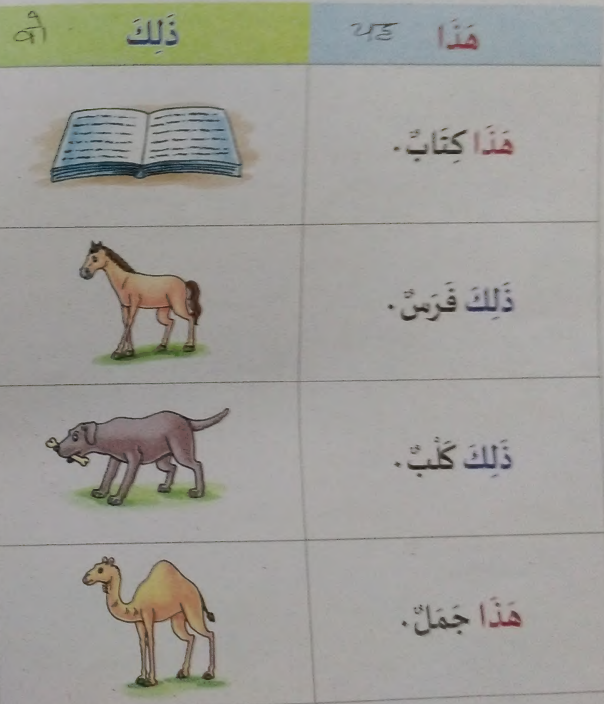 هَذَا यह
ذَلِكَ वो
هَذَا كِتَابٌ.
ذَلِكَ فَرَسٌ.
ذَلِكَ كَلْبٌ.
هَذَا جَمَلٌ.